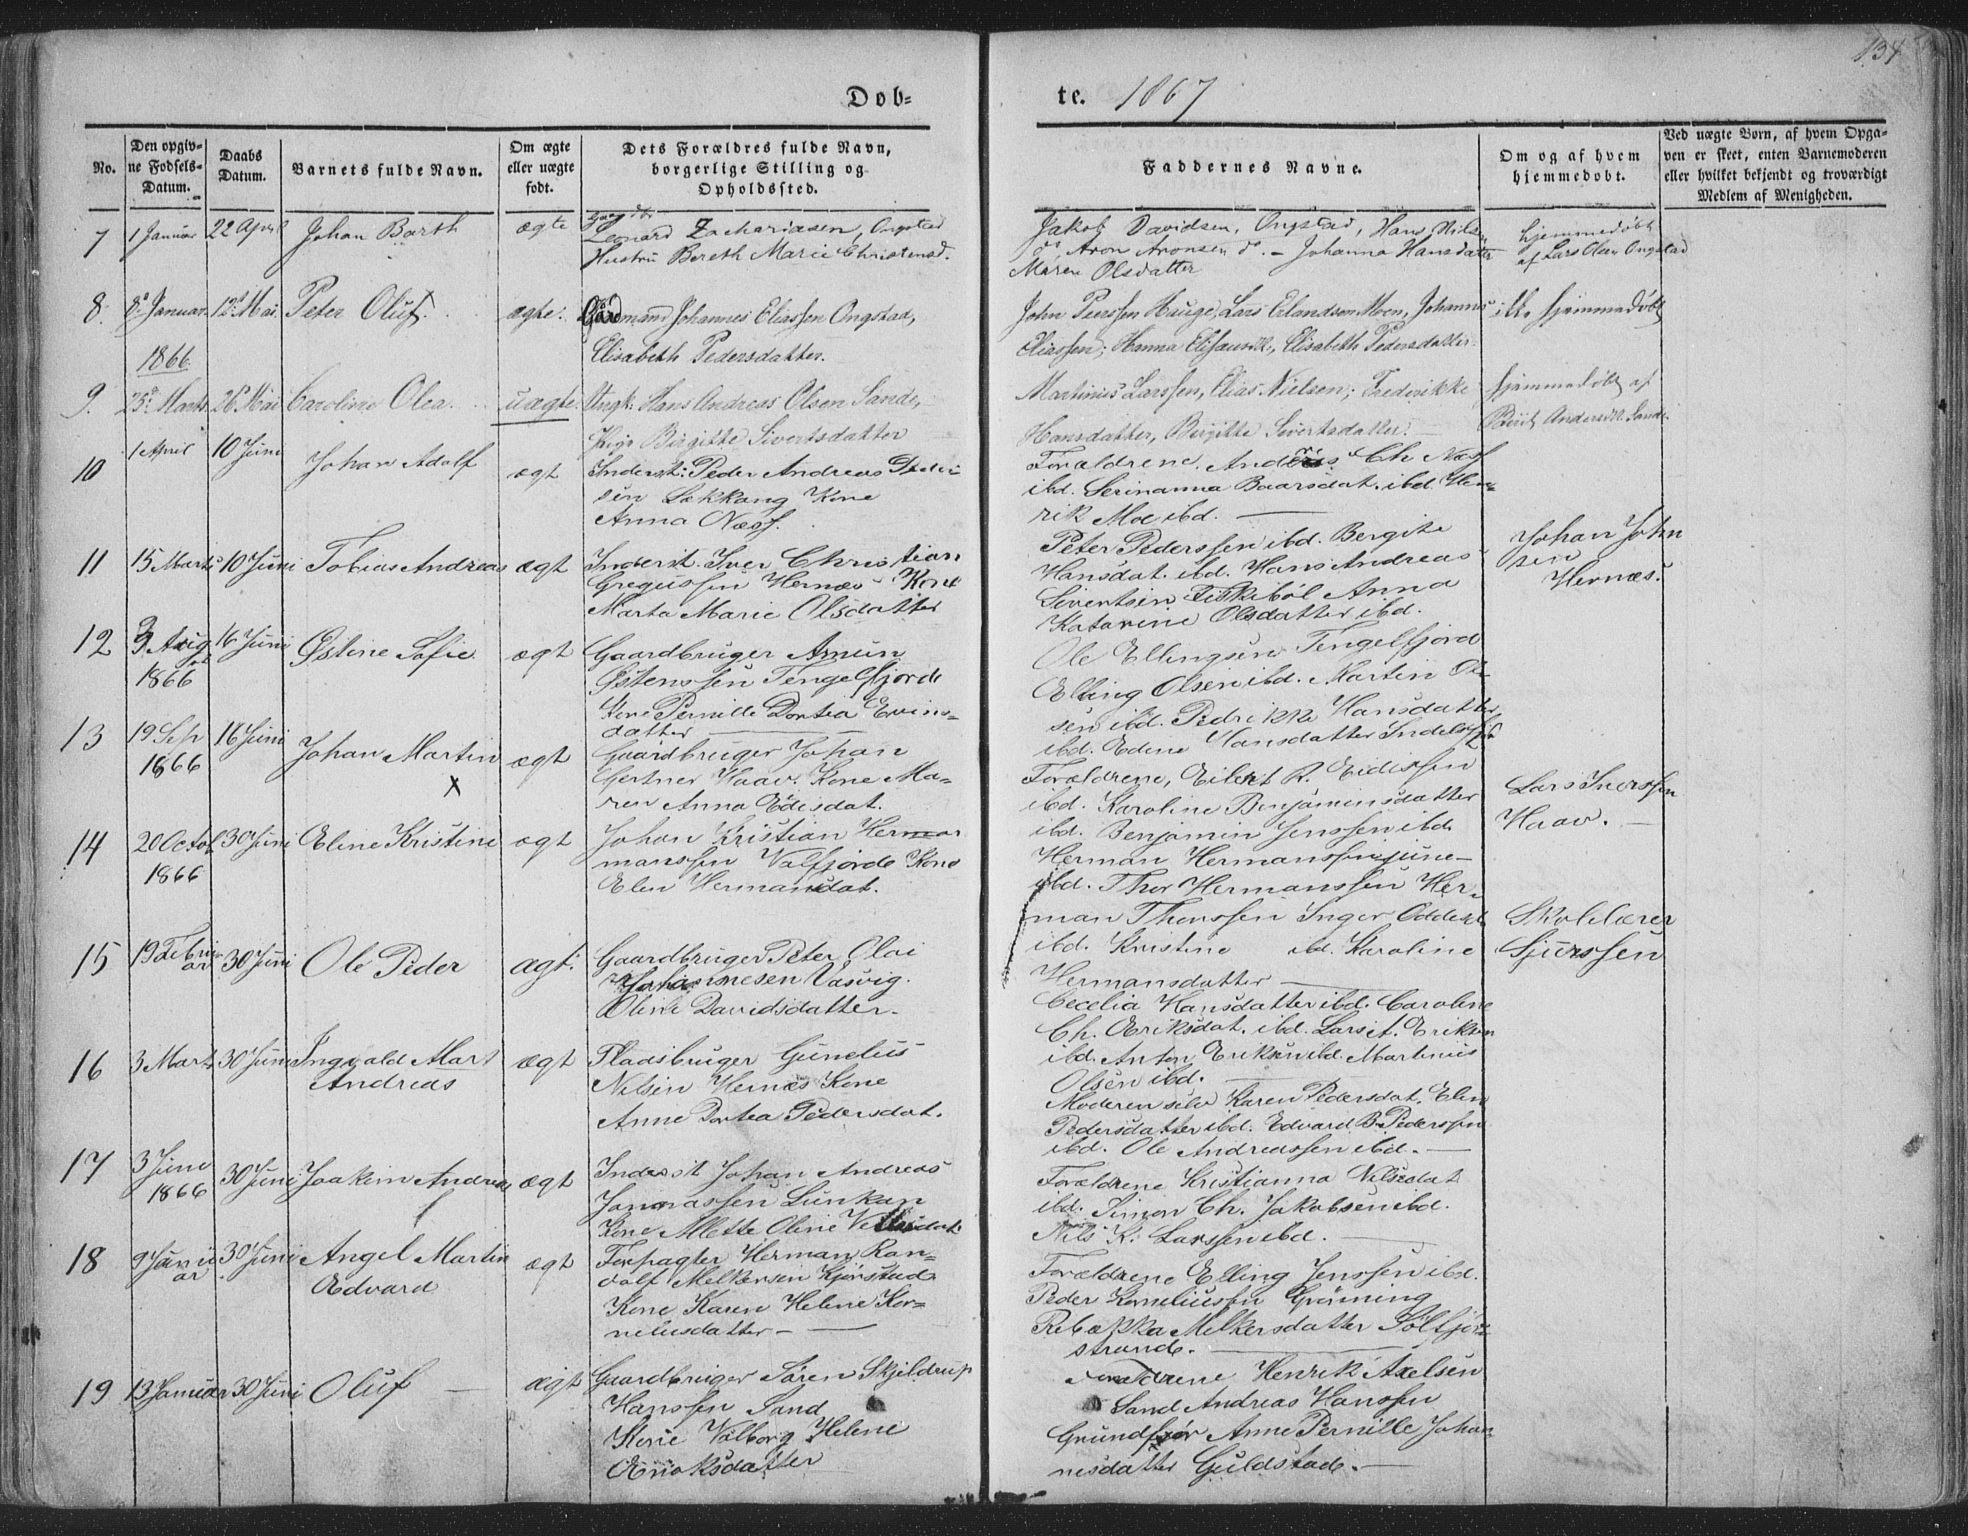 134
Dob=
te. 1867
No.
Den opgiv=
ne Fødsels=
Datum.
Daabs
Datum.
Barnets fulde Navn.
Om ægte
eller uægte
født.
Dets Forældres fulde Navn,
borgerlige Stilling og
Opholdssted.
Faddernes Navne.
Om og af hvem
hjemmedøbt.
Ved uægte Børn, af hvem Opga=
ven er skeet, enten Barnemoderen
eller hvilket bekjendt og troværdigt
Medlem af Menigheden.
7 1 Januar 22 April Johan Barth ægte
Leonard Zachariasen, Ongstad
Hustru Bereth Marie Christensd.
Jakob Davidsen, Ongstad, Hans Nils
do, Aron Aronsen do. - Johanna Hansdatter
Maren Olsdatter
hjemmedøbt
af Lars Olsen Ongstad
8. 8de Januar 1866 12te Mai Peter Oluf. ægte.
Gaardmand Johannes Eliassen Ongstad,
Elisabeth Pedersdatter.
John Peerssen Hauge, Lars Erlandsen Moen, Johannes
Eliassen; Hanna Elisausdtr., Elisabeth Pedersdatter.
ikke hjemmedøbt
9. 25de Marts 26de Mai Caroline Olea. uægte.
Ungk: Hans Andreas Olsen Sande,
Pige Birgitte Sivertsdatter
Martinus Larssen, Elias Nielsen; Frederikke
Hansdatter, Birgitte Sivertsdatter.
hjemmedøbt af
Berit Andersdtr. Sande
10 1 April 10 Juni Johan Adolf ægt
Inderst: Peder Andreas Peder=
sen Løkkang Kone
Anna Næss.
Forældrene. Anders Ch Næss
ibd. Serinanna Baarsdat. ibd Hen=
rik Moe ibd.
11 15 Marts 10 Juni Tobias Andreas ægt
Inderst. Iver Christian
Gregussen Hernæs Kone
Marta Marie Olsdatter
Peter Pederssen ibd. Bergite
Hansdat. ibd. Hans Andreas
Sivertsen Fiskebøl Anna
Katarine Olsdatter ibd.
Johan John
sen
Hernæs.
12 3 Aug 1866 16 Juni Østene Sofie ægt
Gaardbruger Amun
Østenssen Tengelfjord
Kone Pernille Dortea Evins=
datter
Ole Ellingsen Tengelfjord
Elling Olsen ibd. Martin Ol=
sen ibd. Pedrikke Hansdatter
ibd. Edine Hansdatter
13 19 Sep 1866 16 Juni Johan Martin x ægt
Gaardbruger Johan
Gertner Haav. Kone Ma=
ren Anna Edisdat.
Forældrene, Eilert R. Eidissen
ibd. Karoline Benjaminsdatter
ibd. Benjamin Jenssen ibd.
Lars Iverssen
Haav.
14 20 Octob 1866 30 Juni Eline Kristine ægt
Johan Kristian Her
manssen Valfjorde Kone
Elen Hermansdat.
Herman Hermanssen june=
ibd. Thor Hermanssen Her=
man Thorssen Inger
ibd. Kristine ibd. Karoline
Hermansdatter
Skolelærer
Sjurssen
15 19 Februar 30 Juni Ole Peder ægt.
Gaardbruger Peter Olai
Johannesen Vasvig.
Oline Davidsdatter.
Cecelia Hansdatter ibd. Caroline
Ch. Eriksdat. ibd. Lars A. Eriksen
ibd. Anton Eriksen ibd. Martinus
Olsen ibd.
16 3 Marts 30 Juni Ingvald Mart
Andreas ægt
Pladsbruger Gunelius
Nilsen Hernæs Kone
Anne Dortea Pedersdat.
Moderen selv Karen Pedersdat. Elen
Pedersdatter ibd. Edvard B. Pederssen
ibd. Ole Andreassen ibd.
17 3 Juni 1866 30 Juni Joakim Andreas ægt
Inderst Johan Andreas
Jonassen Lunkan
Kone Mette Oline
Forældrene Kristianna Nilsdat
ibd. Simon Ch. Jakobsen ibd.
Nils K. Larssen ibd.
18 9 Januar 30 Juni Angel Martin
Edvard ægt
Forpagter Herman Ran=
dolf Melkersen Kjørstad
Kone Karen Helene Kor=
neliusdatter
Forældrene Elling Jenssen ibd.
Peder Korneliussen Grønning
Rebækka Melkersdatter
strand.
19 13 Januar 30 Juni Oluf ægt
Gaardbruger Søren Skjeldrup
Hanssen Sand
Kone Valborg Helene
Eriksdatter
Forældrene Henrik Axelsen
Sand Andreas Hanssen
Grundfør Anne Pernille Johan
nesdatter Guldstad.